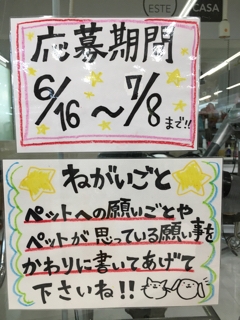 ESTE
CASA
応募期間
6/16～7/8
まで!!
ねがいごと
ペットへの願いごとや
ペットが思っている願い事を
かわりに書いてあげて
下さいね!!